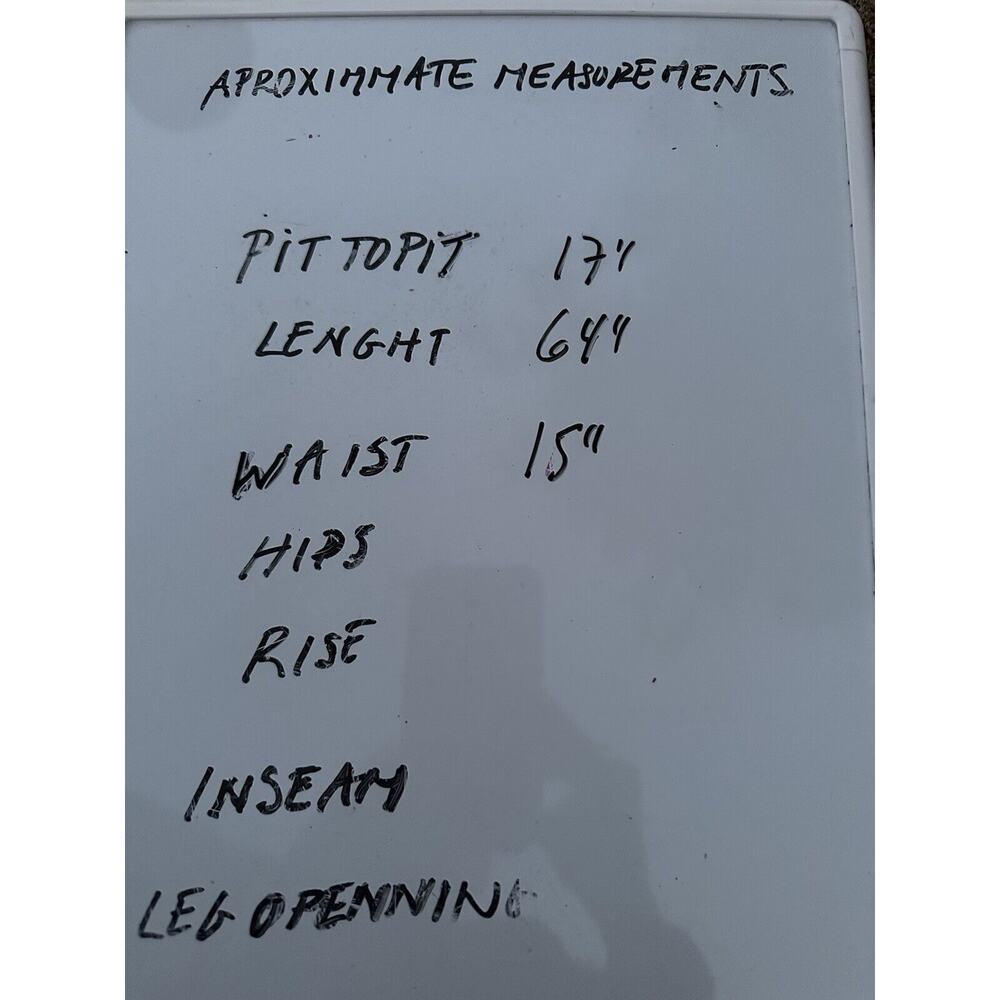 APROXIMMATE MEASUREMENTS
PiT TO PiT 17"
LENGHT 64"
WAIST 15"
HIPS
RISE
INSEAM
LEG OPENNING